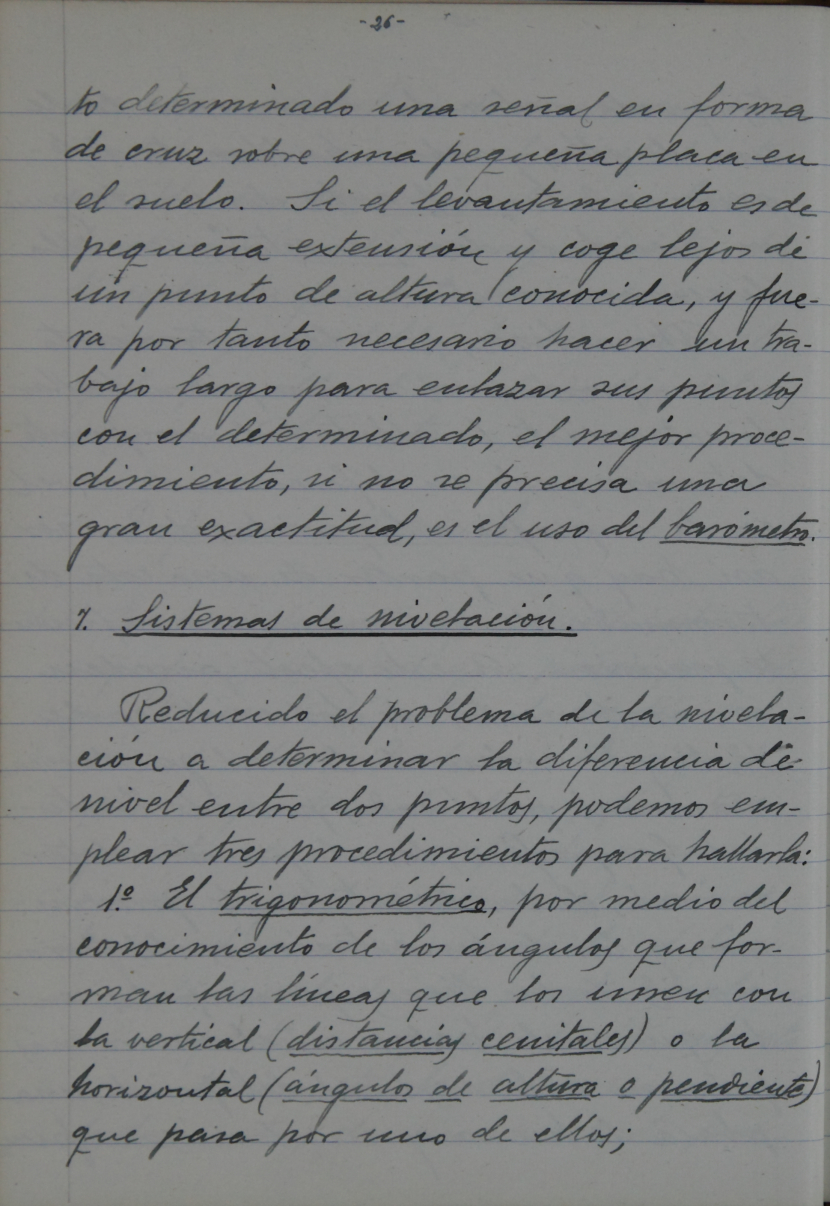 -26-
to determinado una señal en forma
de cruz sobre una pequeña placa en
el suelo. Si el levantamiento es de
pequeña extensión y coge lejos de
un punto de altura conocida, y fue-
ra por tanto necesario hacer un tra-
bajo largo para enlazar sus puntos
con el determinado, el mejor proce-
dimiento, si no se precisa una
gran exactitud, es el uso del barómetro.
7. Sistemas de nivelación.
Reducido el problema de la nivela-
ción a determinar la diferencia de
nivel entre dos puntos, podemos em-
plear tres procedimientos para hallarla:
1º El trigonométrico, por medio del
conocimiento de los ángulos que for-
man las líneas que los unen con
la vertical (distancias cenitales) o la
horizontal (ángulos de altura o pendiente)
que pasa por uno de ellos;